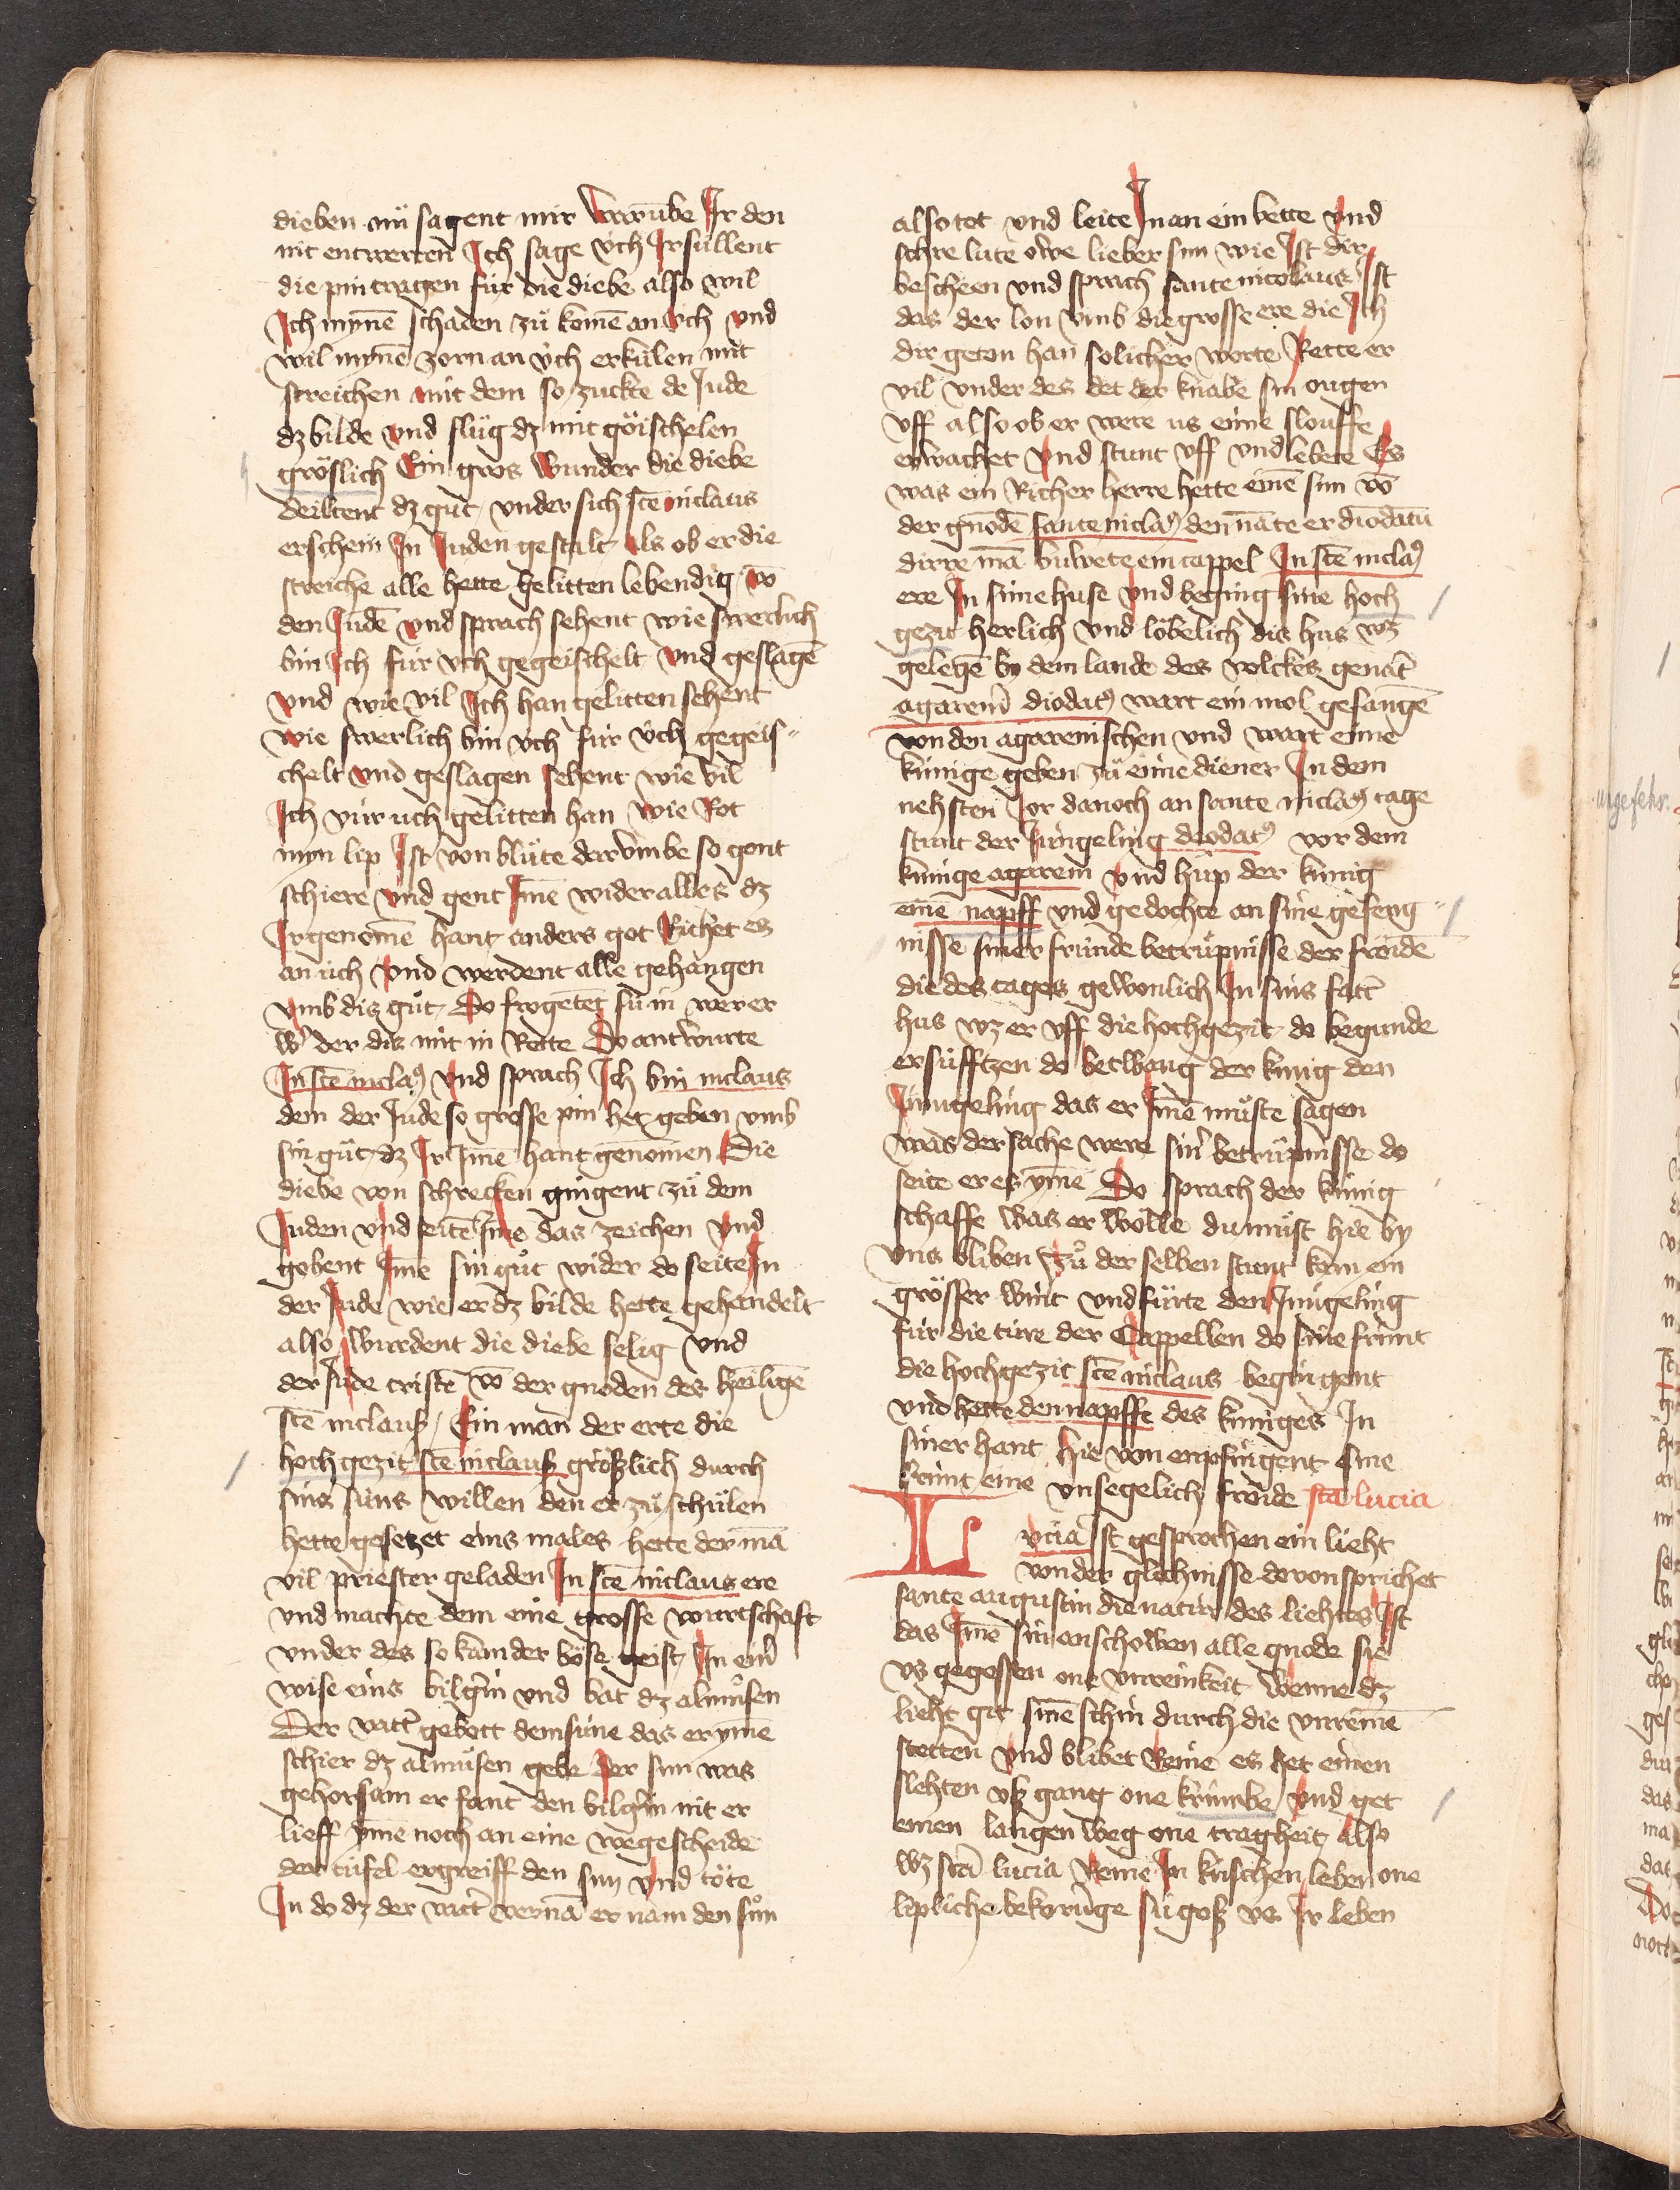 dieben nuͤ sagent mir Warūbe Ir den
nit entwerten Ich sage v̈ch Ir süllent
die pin tragen für die diebe also wil
Ich mynē schaden zuͦ komē an v̈ch vnd
wil mynē zorn an v̈ch erkülen mit
streichen mit dem so zuckte de Jude
dz bilde vnd slüg dz mit göischelen
gröslich Ein gros Wunder die diebe
deiltent dz guͦt vnder sich stē niclaus
erschein In Juden gestalt als ob er die
streiche alle hette gelitten lebendig vō
den Judē vnd sprach sehent wie swerlich
bin Ich für v̈ch gegeischelt vnd geslagē
vnd wie vil Ich han gelitten sehent
wie swerlich bin v̈ch für v̈ch gegeis〃
chelt vnd geslagen sehent wie vil
Ich vür uch gelitten han wie Rot
myn lip Ist von bluͤte dar vmbe so gont
schiere vnd gent Imē wider alles dz
Ir genomē hant anders got Richet es
an üch vnd werdent alle gehangen
vmb dis guͦt Do frogētēt sü in wer er
W' der dis mit in Rette Do antwurte
In stē niclaꝰ vnd sprach Ich bin niclaus
dem der Jude so grosse pin het geben vmb
sin guͦt dz Ir Imē hant genomen Die
diebe von schrecken gingent zuͦ dem
Juden vnd seitē Ime das zeichen vnd
gebent Imē sin guͦt wider do seite In
der Jude wie er dz bilde hette gehandelt
also wurdent die diebe selig vnd
der Jude cristē vō der gnoden des heiligē
stē niclauß Ein man der erte die
hochgezit stē niclauß größlich durch
sins süns willen den er zuͦ schülen
hette gesetzet eins males hette der mā
vil priester geladen In stē niclaus ere
vnd machte dem eine grosse wirtschaft
vnder des so kam der böse geist In ein'
wise eins bilgrin vnd bat dz almuͦsen
Der vatt' gebott dem sune das er ymē
schier dz almuͦsen gebe der sun was
gehorsam er fant den bilgrin nit er
lieff yme noch an eine wegescheide
der tüfel ergreiff den sun vnd töte
In do dz der vatt' vernā er nam den suͦn
also tot vnd leite In an ein bette vnd
schre lute owe lieber sun wie Ist dir
bescheen vnd sprach sante nicolaus Ist
das der lon vmb die grosse ere die Ich
dir geton han solicher worte Rette er
vil vnder des det der knabe sin ougen
vff also ob er were us eime slouffe
erwachet vnd stunt vff vnd lebete Es
was ein Richer herre hette einē sun vō
der gnodē sante niclaꝰ den nāte er diodatū
dirre mā buwete ein cappel In stē niclaꝰ
ere In sime huse vnd beging sine hoch
gezit herlich vnd löbelich dis hus wz
gelegē by dem lande des volckes genāt
agarem̄ diodatꝰ wart ein mol gefangē
von den agarenischen vnd wart eime
künige geben zuͦ eime diener In dem
nehsten Jor danoch an sante niclaꝰ tage
stunt der Jüngeling deodatꝰ vor dem
künige agarem vnd huͦp der künig
einē napff vnd gedochte an sine gefeng〃
nisse siner fründe betrüpnisse der froidē
die des tages gewonlich In sins fatt'
hus wz er vff die hochgezit do begunde
er süfftzen do betwang der künig den
Jüngeling das er Imē muͦste sagen
was der sache were sin' betrüpnisse do
seite er es ymē Do sprach der künig
schaffe was er wölle du muͦst hie by
vns bliben Zuͦ der selben stunt kam ein
grösser wint vnd fürte den Jüngeling
für die türe der Cappellen do sine frünt
die hochgezit stē niclaus begingent
vnd hette den napffe des küniges In
siner hant hie von enpfingent sine
frünt eine vnsegelich froide stā lucia
Lvcia Ist gesprochen ein lieht
von der glichnisse do von sprichet
sante augustin die natür des liehtes Ist
das Imē sin anschowen alle gnade sie
vs gegossen one vnreinkeit Wenne dz
lieht git sinē schin durch die vnreinē
stetten vnd blibet Reine es het einen
slehten vß gang one krümbe vnd get
einen langen weg one tragheit also
wz stā lucia Reine In küschen leben one
lipliche bekorūge sü goß vs Ir leben
ungefehr.